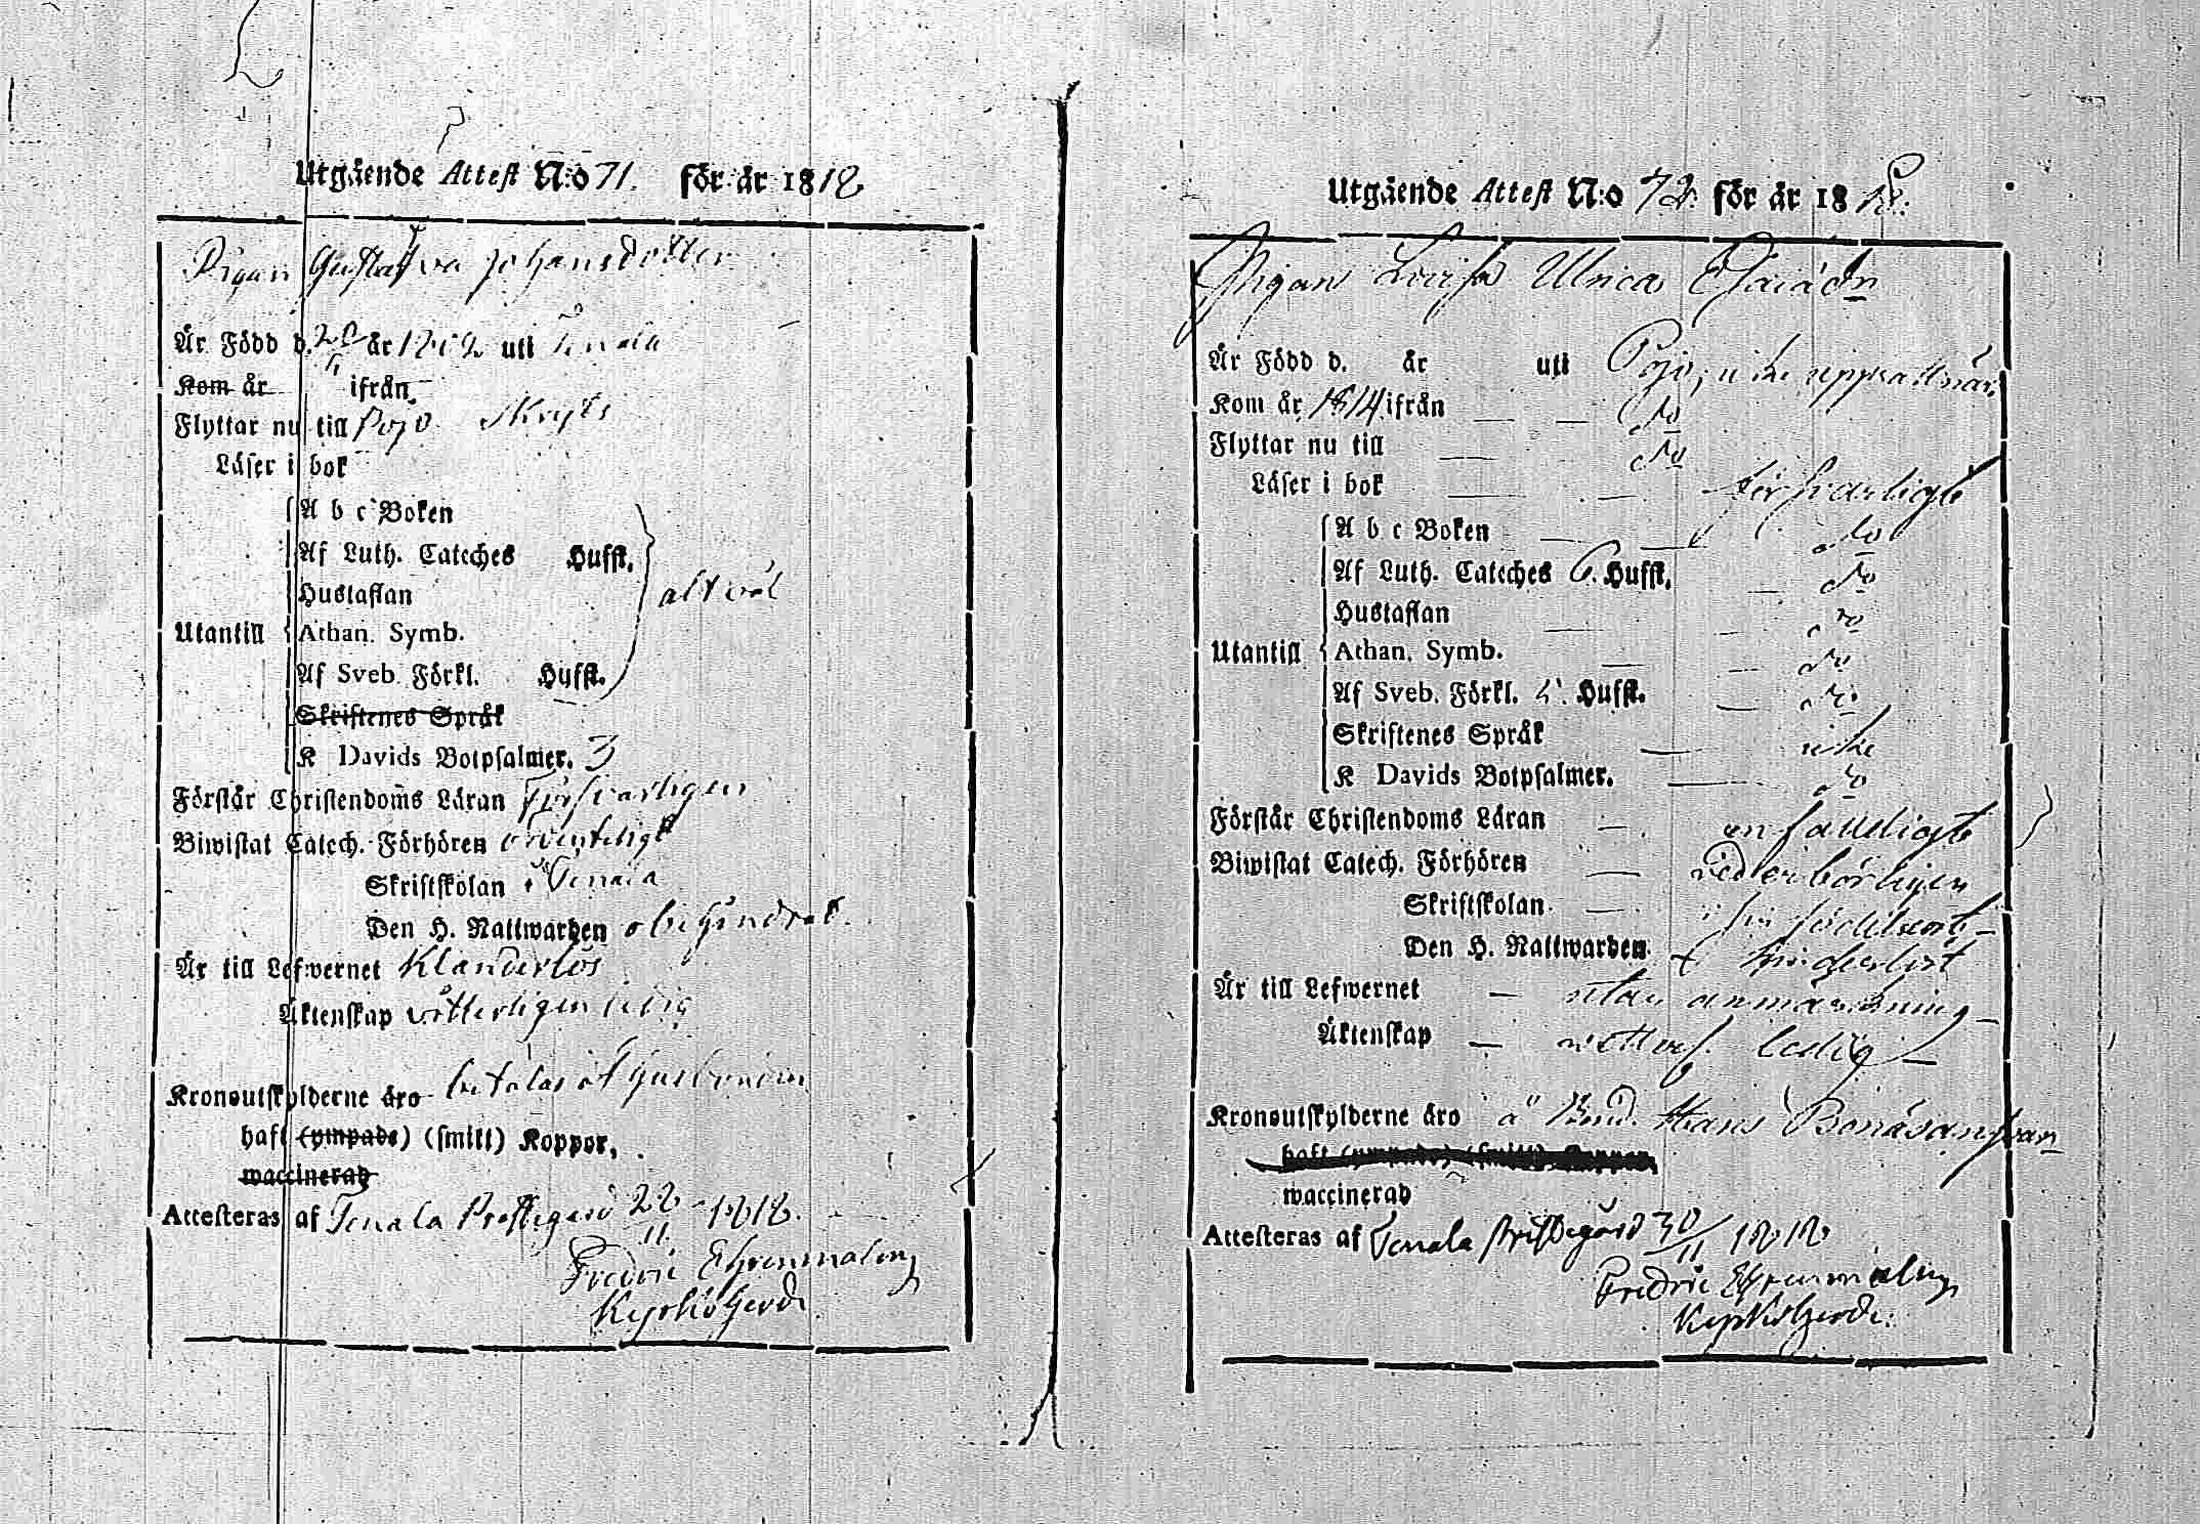 Utgående Attest N:o 71. för år 1818
Pigan Gustafva Johansdotter
Är Född d. 28 år uti Tenala
Kom år ifrån
Flyttar nu till Pojo
Läser i bok
A b c Boken
Af Luth. Cateches Hufst.
Hustaflan
alt väl
Utantill Athan. Symb.
Af Sveb. Förkl. Hufst.
Skriftenes Språk
K Davids Botpsalmer. 3
Förstår Christendoms Läran försvarligen
Biwistat Catech. Förhören ordenteligt
Skriftskolan i Tenala
Den H. Nattwarden obehindrat.
Är till Lefwernet Klanderlös
Äktenskap vitterligen ledig
Kronoutskylderne äro betalas af husbonden
haft (ympade) (smitt) Koppor.
waccinerad
Attesteras af Tenala Prestegård 28/11 1818.
Fredric Ehrenmalm
Kyrkoherde
Utgående Attest N:o 72. för år 1818.
Pigan Lovisa Ulrica
Är Född d. år uti Pojo,
Kom år 1814 ifrån — — do
Flyttar nu till — do
Läser i bok — — försvarligt
A b c Boken — — do
Af Luth. Cateches 6. Hufst. — do
Hustaflan — — do
Utantill Athan. Symb. — — do
Af Sveb. Förkl. Hufst. — do
Skriftenes Språk — icke
K Davids Botpsalmer. — do
Förstår Christendoms Läran — enfaldigt
Biwistat Catech. Förhören — vederbörligen
Skriftskolan —
Den H. Nattwarden
Är till Lefwernet — utan anmärkning —
Äktenskap — ledig —
Kronoutskylderne äro å Hans
haft (ympade) (smitt) Koppor.
waccinerad
Attesteras af Tenala prestegård 30/11 1818
Fredric Ehrenmalm
Kyrkoherde.